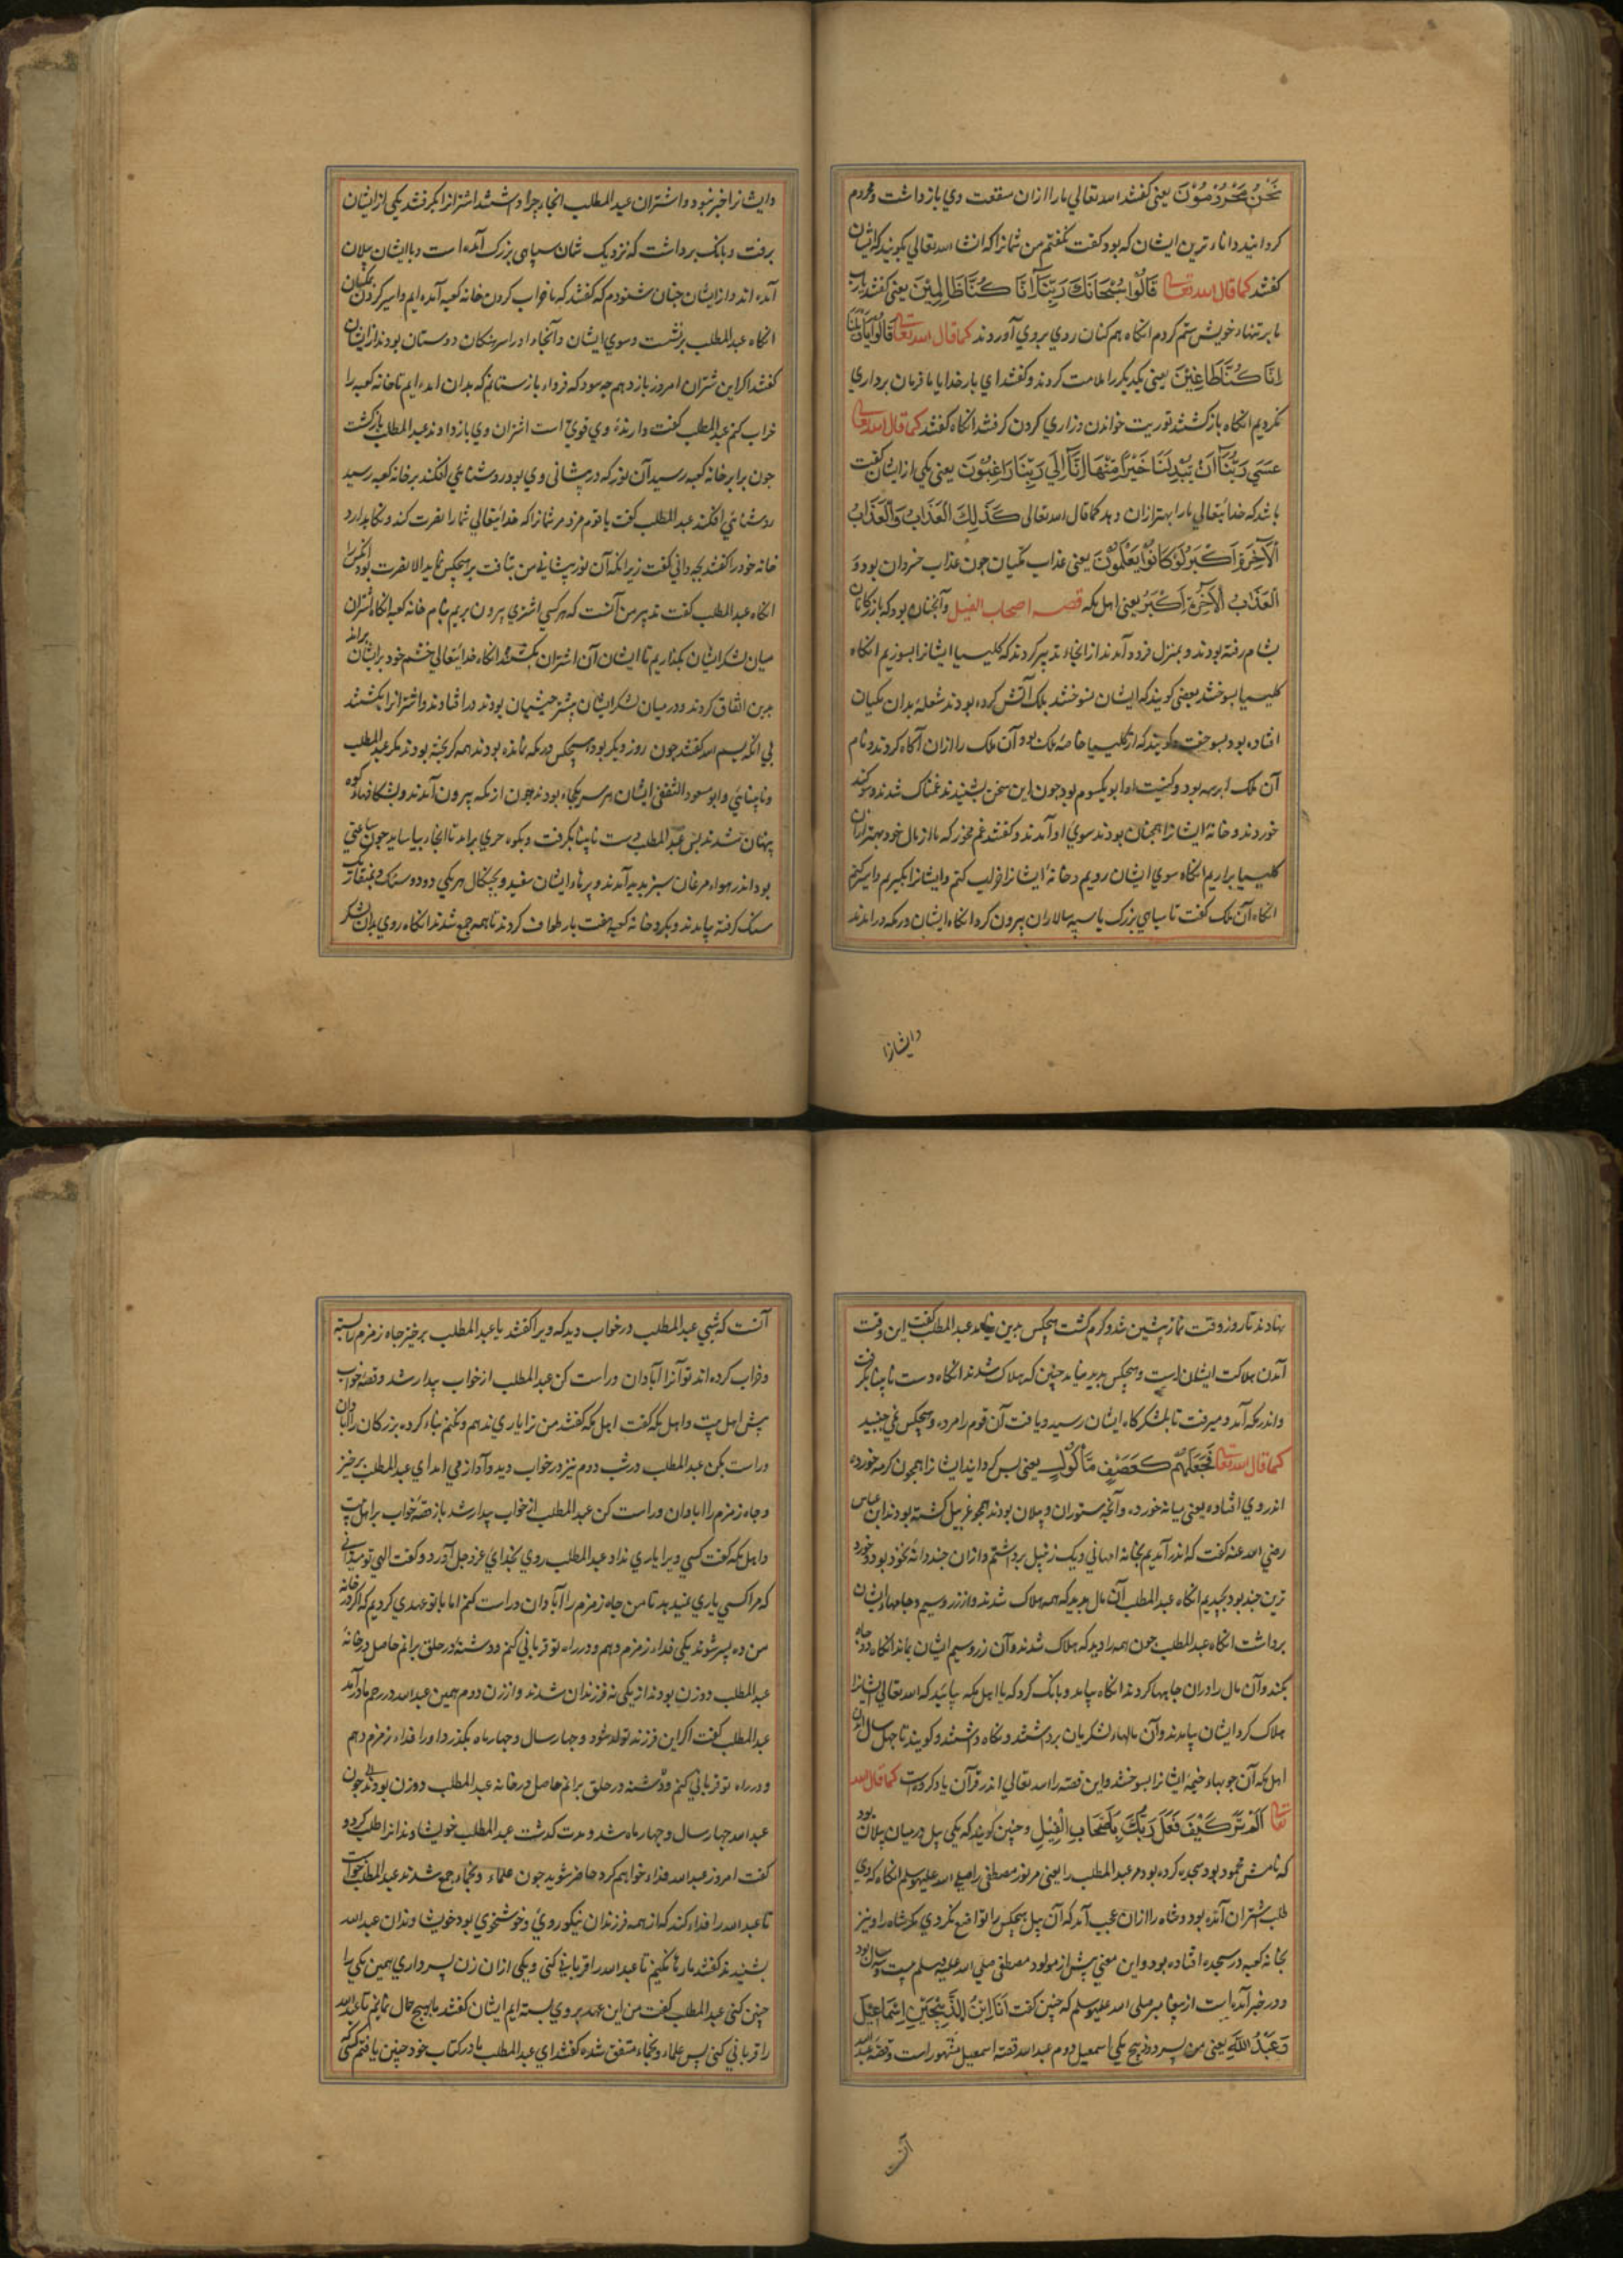 نَحْنُ مَحْرُوْمُوْنَ یعنی کفتند الله تعالي مارا ازان منفعت وي بازداشت ومحروم
کردانید داناءترین ایشان که بود کفت نکفتم من شمانرا که انشا الله تعالي بکویید که ایشان
کفتند کما قال الله تعالی قَالُوْا سُبْحَانَكَ رَبِّنَا اَنَّا كُنَّا ظَالِمِيْنَ یعنی کفتند یارب
ما برتنهاء خویش ستم کردم انکاه همکنان روي بروي آوردند کما قال الله تعالی قَالُوْا يَاوَيْلَنَا
اِنَّا كُنَّا طَاغِيْنَ یعنی یکدیکر را ملامت کردند و کفتند اي بارخدایا ما فرمان برداري
نکردیم انکاه بازکشتند توریت خواندن وزاري کردن کرفتند انکاه کفتند کما قال الله تعالی
عَسَي رَبُّنَا اَنْ يُبْدِلَنَا خَيْرًا مِنْهَا اِنَّا اِلَي رَبِّنَا رَاغِبُوْنَ یعنی یکي از ایشان کفت
باشد که خدایتعالي مارا بهتر ازان دهد کما قال الله تعالی كَذَلِكَ الْعَذَابُ وَالْعَذَابُ
الْآخِرَةِ اَكْبَرُ لَوْ كَانُوْا يَعْلَمُوْنَ یعنی عذاب مکیان چون عذاب خردان بود و
الْعَذَابُ الْآخِرَةِ اَكْبَرُ یعنی اهل مکه قصه اصحاب الفیل وآنجنان بود که بازرکانان
بشام رفته بودند و بمنزل فرود آمدند از انجاء تدبیر کردند که کلیسیا ایشانرا بسوزیم انکاه
کلیسیا بسوختند بعضی کویند که ایشان نسوختند بلک آتش کرده بودند شعله بدان مکیان
افتاده بود بسوخت وکویند که از کلیسیا خاصه ملک بود آن ملک را ازان آکاه کردند و نام
آن ملک ابرهه بود و کنیت او ابویکسوم بود چون این سخن بشنیدند غمناک شدند و سوکند
خوردند و خانه ایشانرا همجنان بودند سوي او آمدند و کفتند غم مخور که ما از مال خود بهتر ازان
کلیسیا براریم انکاه سوي ایشان رویم و خانه ایشانرا خراب کنم و ایشانرا بکیرم و اسیر کنم
انکاه آن ملک کفت تا سپاهی بزرک با سپه سالاران بیرون کرد انکاه ایشان در مکه درامدند
وایشانرا
وایشانرا خبر نبود و اشتران عبدالمطلب انجاء چراء داشتند اشترانرا بکرفتند یکي از ایشان
برفت و بانک برداشت که نزدیک شمان سپاهی بزرک آمده است و باایشان پیلان
آمده اند و از ایشان چنان شنودم که کفتند که ما خراب کردن خانه کعبه آمده ایم و اسیر کردن مکیان
انکاه عبدالمطلب برنشست وسوي ایشان و آنجاء اورا سرهنکان دوستان بودند از ایشان
کفتند اکر این شتران امروز باز دهم چه سود که فرداء باز ستانیم که بدان امده ایم تا خانه کعبه را
خراب کنم عبدالمطلب کفت دارندهٔ وي قویّ است اشتران وي بازدادند عبدالمطلب بازکشت
چون برابر خانه کعبه رسید آن نور که در پیشانی وي بود روشنایي افکند بر خانه کعبه رسید
روشنایي افکند عبدالمطلب کفت با قوم مژد مر شمانرا که خدایتعالي شمارا نصرت کند و نکاهدارد
خانه خود را کفتند بچه داني کفت زیرا که آن نور پیشاني من بتافت بر هیچکس نتابد الا نصرت بود انکس را
انکاه عبدالمطلب کفت تدبیر من آنست که هر کسی اشتري بیرون بریم بنام خانه کعبه انکاه اشتران
میان لشکر ایشان بکذاریم تا ایشان آن اشتران بکشند انکاه خدایتعالي خشم خود بر ایشان براند
بدین اتفاق کردند و در میان لشکر ایشان بیشتر حبشیان بودند در افتادند و اشترانرا بکشتند
بي انکه بسم الله کفتند چون روز دیکر بود هیچکس در مکه نمانده بودند همه کریخته بودند مکر عبدالمطلب
و نابینایي و ابو مسعود الثقفی ایشان هر سه یکجاء بودند چون از مکه بیرون آمدند و بشکافهاء کوه
پنهان شدند پس عبدالمطلب دست نابینا بکرفت و بکوه حري برامد تا انجاء بیاساید چون ساعتي
بود اندر هواء مرغان سبز پدید آمدند و پرهاء ایشان سفید و بچنکال هر یکي دو دو سنک و بمنقار یک
سنک کرفته بیامدند و بکرد خانه کعبه هفت بار طواف کردند تا همه جمع شدند انکاه روي بدان لشکر
نهادند تا روز وقت نماز پیشین شد و کرم کشت هیچکس بدین نیامد عبدالمطلب کفت این وقت
آمدن هلاکت ایشان است و هیچکس پدید میاید چنین که هلاک شدند انکاه دست نابینا بکرفت
و اندر مکه آمد و میرفت تا بلشکرکاه ایشان رسید و یافت آن قوم را مرده و هیچکس نمی جنبید
کما قال الله تعالی فَجَعَلَهُمْ كَعَصْفٍ مَأْكُوْلٍ یعنی پس کردانید ایشانرا همچون کرمه خورده
اندروي افتاده یعنی میانه خورده وآنچه ستوران و پیلان بودند همچو غربیل کشته بودند ابن عباس
رضي الله عنه کفت که اندر آمدیم بخانه امهاني و یک زنبیل برداشتم و ازان چند دانه بخوذ بود و خورد
ترین چند بود بچیدیم انکاه عبدالمطلب آن مال بدید که همه هلاک شدند و از زر وسیم و جامهاء ایشان
برداشت انکاه عبدالمطلب چون همه را دید که هلاک شدند و آن زر و سیم ایشان بماند انکاه دو چاه
بکندو آن مال را دران چاهها کردند انکاه بیامد و بانک کرد که یا اهل مکه بیائید که الله تعالي ایشانرا
هلاک کرد ایشان بیامدند وآن مالهاء لشکریان برداشتند و نکاه داشتند و کویند تا چهل سال ازان
اهل مکه آن چوبهاء خیمهٔ ایشانرا بسوختند و این قصه را الله تعالي اندر قرآن یاد کرده است کما قال الله
تعالی اَلَمْ تَرَ كَيْفَ فَعَلَ رَبُّكَ بِاَصْحَابِ الْفِيْلِ و چنین کویند که یکي پیل در میان پیلان بود
که نامش محمود بود سجده کرده بود مر عبدالمطلب را یعنی مر نور مصطفی را صلي الله علیه وسلم انکاه که وي
طلب اشتران آمده بود و شاه را ازان عجب آمد که آن پیل هیچکس را تواضع نکردي مکر شاه را و نیز
بخانه کعبه در سجده افتاده بود و این معني پیش از مولود مصطفی صلي الله علیه وسلم بیست و سه سال بود
و در خبر آمده است از پیغامبر صلی الله علیه وسلم که چنین کفت اَنَا اِبْنُ الذَّبِيْحَيْنِ اِسْمَاعِيْلَ
وَعَبْدُاللهِ یعنی من پسر دو ذبیح یکی اسمعیل دوم عبدالله قصه اسمعیل مشهور است و قصه عبدالله
آنست
آنست که شبي عبدالمطلب در خواب دید که ویرا کفتند یا عبدالمطلب برخیز چاه زمزم را بسته
و خراب کرده اند تو آنرا آبادان و راست کن عبدالمطلب از خواب بیدار شد و قصه خواب
پیش اهل بیت و اهل مکه کفت اهل مکه کفتند من ترا یاري ندهم و نکنم بناء کرده بزرکان را ابادان
و راست بکن عبدالمطلب در شب دوم نیز در خواب دید و آواز می امد اي عبدالمطلب برخیز
و چاه زمزم را ابادان و راست کن عبدالمطلب از خواب بیدار شد باز قصه خواب بر اهل بیت
و اهل مکه کفت کسي ویرا یاري نداد عبدالمطلب روي بخداي عزوجل آورد و کفت الهي تو میداني
که مرا کسي یاري نمیدهد تا من چاه زمزم را آبادان و راست کنم اما با تو عهدي کردیم که اکر در خانه
من ده پسر شوند یکی فداء زمزم دهم و در راه تو قرباني کنم و دشنه در حلق برانم حاصل در خانهٔ
عبدالمطلب دو زن بودند از یکی نه فرزندان شدند و از زن دوم همین عبدالله در رحم مادر آمد
عبدالمطلب کفت اکر این فرزند تولد شود و چهار سال و چهار ماه بکذرد اورا فداء زمزم دهم
و در راه تو قرباني کنم و دشنه در حلق برانم حاصل در خانه عبدالمطلب دو زن بودند چون
عبدالله چهار سال و چهار ماه شد و مدت کذشت عبدالمطلب خویشاوندانرا طلب کرد و
کفت امروز عبدالله فداء خواهم کرد حاضر شوید چون علماء و نجباء جمع شدند عبدالمطلب خواست
تا عبدالله را فداء کند که از همه فرزندان نیکو روي و خوشخوي بود خویشاوندان عبدالله
بشنیدند کفتند مارا نکنیم تا عبدالله را قرباني کنی و یکی ازان زن پسر داري همین یکي را
چنین کنی عبدالمطلب کفت من این عهد بروي بسته ایم ایشان کفتند ما بهیچ حال نمانیم تا عبدالله
را قرباني کنی پس علماء و نجباء متفق شده کفتند اي عبدالمطلب ما در کتاب خود چنین یافتیم کسی